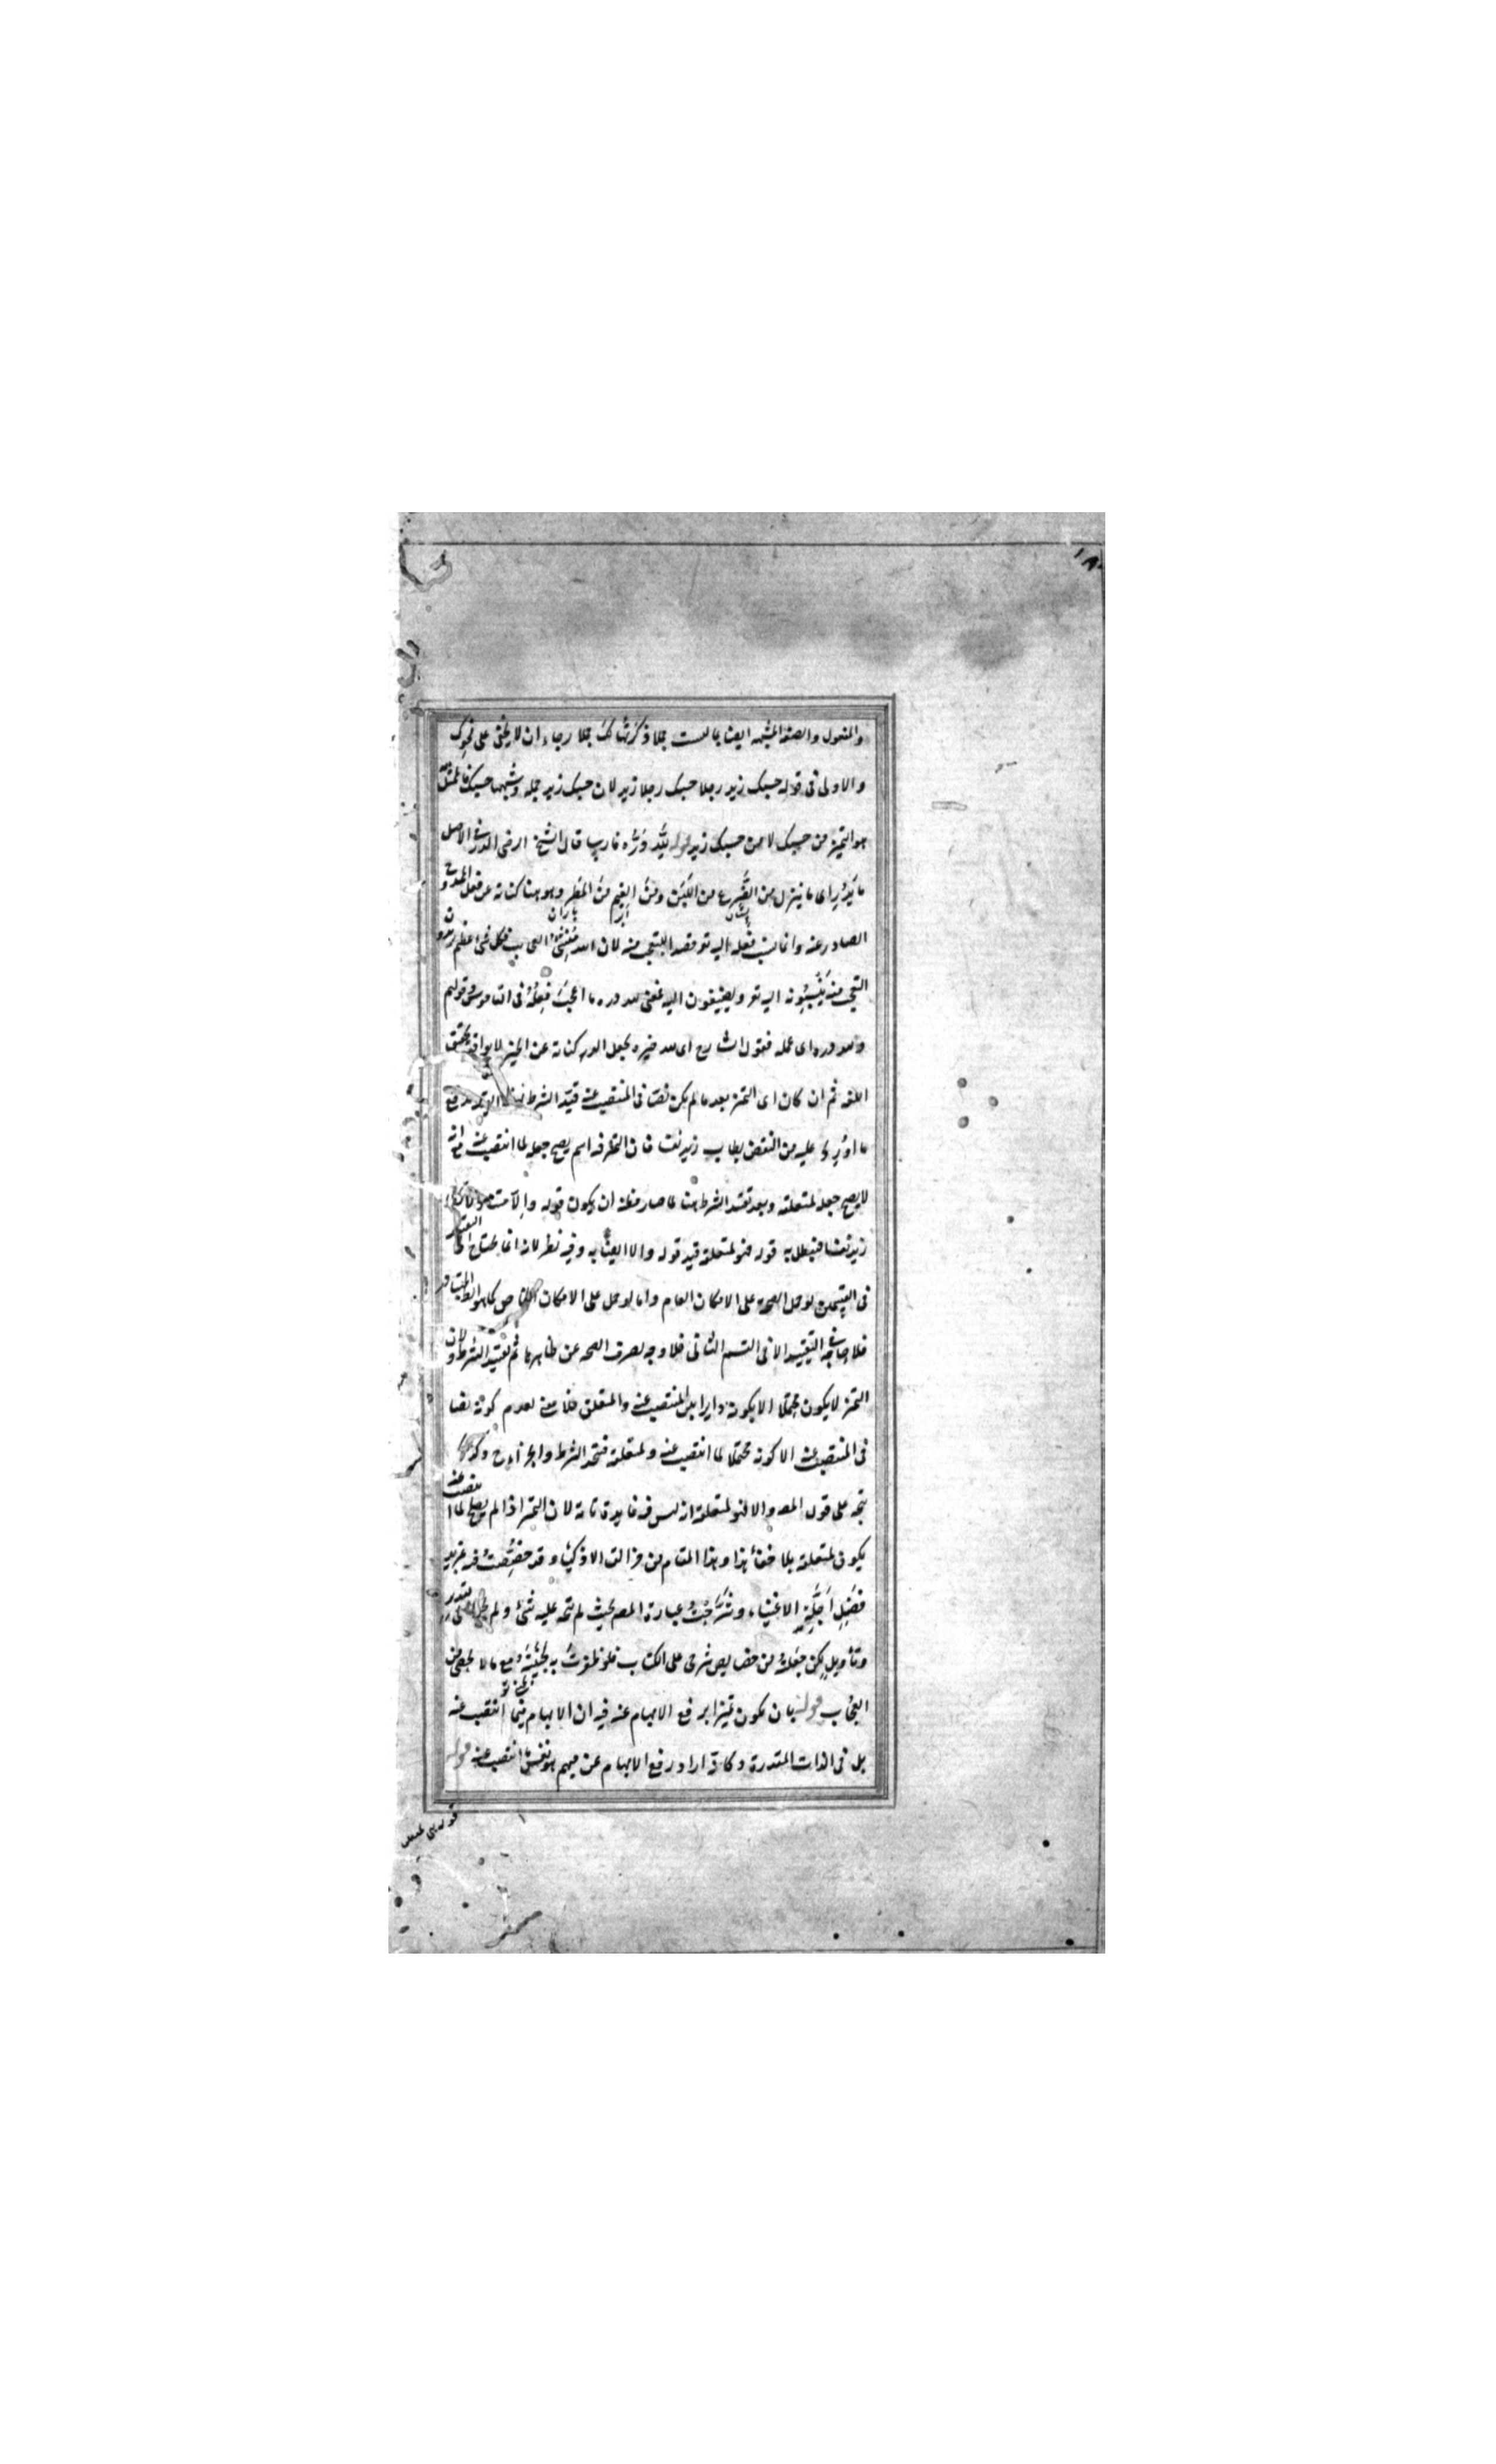 ١٨٠
والمفعول والصفة المشبهة ايضا مما ليست جملا ذكرتها لك جملا رجاء ان لا يخفى على نحوك
والاولى فى قوله حسبك زيد رجلا حسبك رجلا زيد لان حسبك زيد جملة وشبهها حسبك
هو التميز من حسبك لا من حسبك زيد قوله لله دره فارسا قال الشيخ الرضى الدر فى الاصل
ما يدر اى ما ينزل من الضرع من اللبن ومن الغيم من المطر وهو هنا كناية عن فعل الممدوح
پستان ابر باران
الصادر عنه وانما نسب فعله اليه تع قصدا للتعجب منه لان الله منشئ العجايب فكل شئ اعظم يريدون
التعجب منه ينسبونه اليه تع ويضيفون اليه فمعنى لله دره ما اعجب فعله فى القاموس وقولهم
ولله دره اى عمله فقول الشارح اى لله خيره بجعل الدر كناية عن الخير لا يوافق تحقيق
اللغة ثم ان كان اى التميز بعد ما لم يكن نصا فى المنتصب عنه قيد الشرط بهذا القيد ليدفع
ما اورد عليه من النقض بطاب زيد نفسا فان النفس اسم يصح جعله لما انتصب عنه مع انه
لا يصح جعله لمتعلقه وبعد تقييد الشرط بهذا صار مظنة ان يكون قوله والا
زيد نفسا فيبطل به قوله فهو لمتعلقه قيد قوله والا ايضا به وفيه نظر لانه انما يحتاج الى التقييد
فى القسمين لو حمل الصحة على الامكان العام واما لو حمل على الامكان الخاص كما هو المتبادر
فلا حاجة فى التقييد الا فى القسم الثانى فلا وجه لصرف الصحة عن ظاهرها ثم تقييد الشرط ولان
التميز لا يكون محتملا الا بكونه دايرا بين المنتصب عنه والمتعلق فلا معنى لعدم كونه نصا
فى المنتصب عنه الا كونه محتملا لما انتصب عنه ولمتعلقه فيتحد الشرط والجزاء ح وكذا
يتجه على قول المصـ والا فهو لمتعلقه انه ليس فيه فايدة تامة لان التميز اذا لم يصلح لما انتصب عنه
يكون لمتعلقه بلا خفاء هذا وهذا المقام من مزالق الاذكياء وقد خصصت فيه بمزيد
فضل اجلة الاغنياء وشرحت عبارة المصـ بحيث لم يتجه عليه شئ ولم يحتج الى تقدير
وتأويل لكن جعلته من خصايص شرحى على الكتاب فلو ظفرت به لجئته مع ما لا يحصى من
العجاب قوله بان يكون تميزا يرفع الابهام عنه فيه ان الابهام ليس فيما انتصب عنه
بل فى الذات المقدرة وكانه اراد رفع الابهام عن مبهم هو نفس ما انتصب عنه قوله